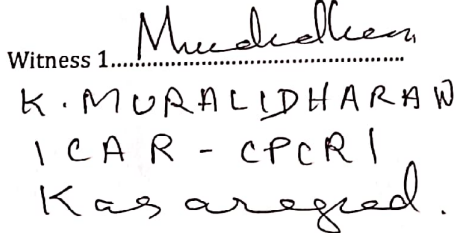 Witness 1.......................................................
K. MURALIDHARAN
ICAR - CPCRI
Kasaragod.